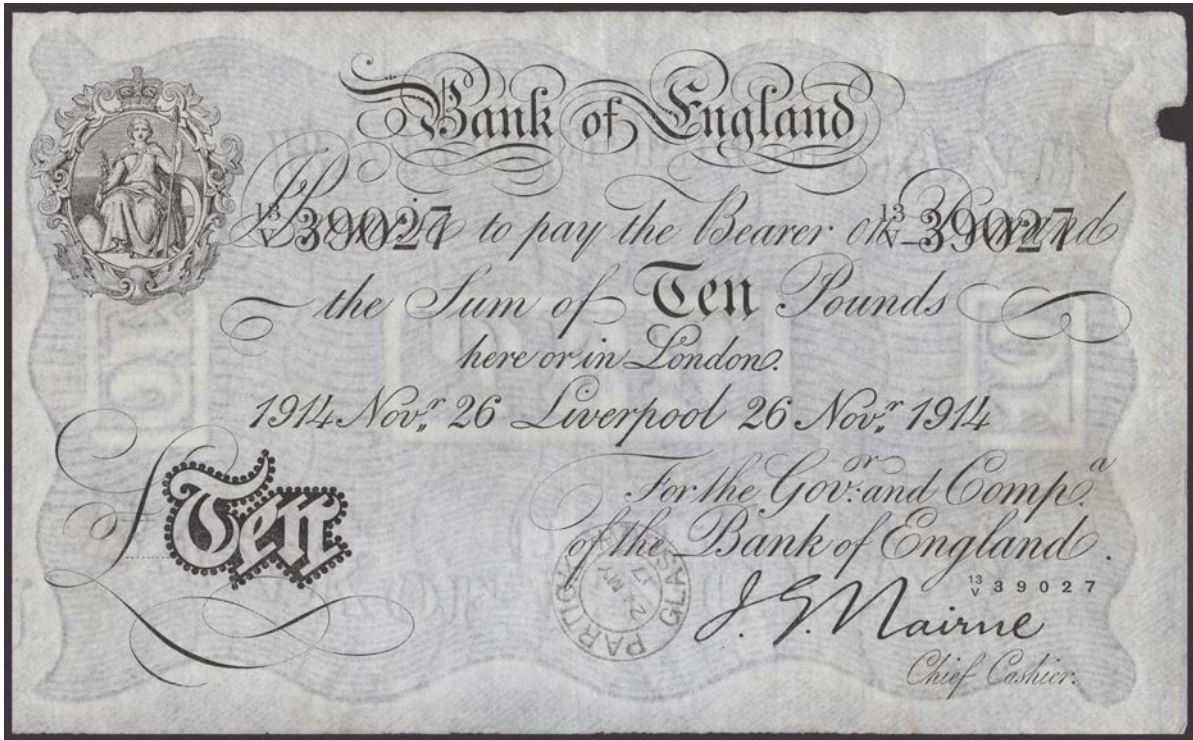 Bank of England
I Promise to pay the Bearer on Demand
13/V 39027 13/V 39027
the Sum of Ten Pounds
here or in London.
1914 Novr 26 Liverpool 26 Novr 1914
For the Govor and Compa
of the Bank of England.
£Ten
13/V 39027
J. G. Nairne
Chief Cashier.
PARTICK GLASGOW
24 MY
17